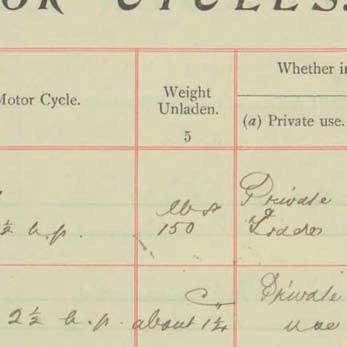 OR CYCLES.
Motor Cycle.
Weight
Unladen.
5
Whether in
(a) Private use.
½ h.p.
lbs
150
Private
&
Trades
2½ h.p.
about 1¼
c
Private
use